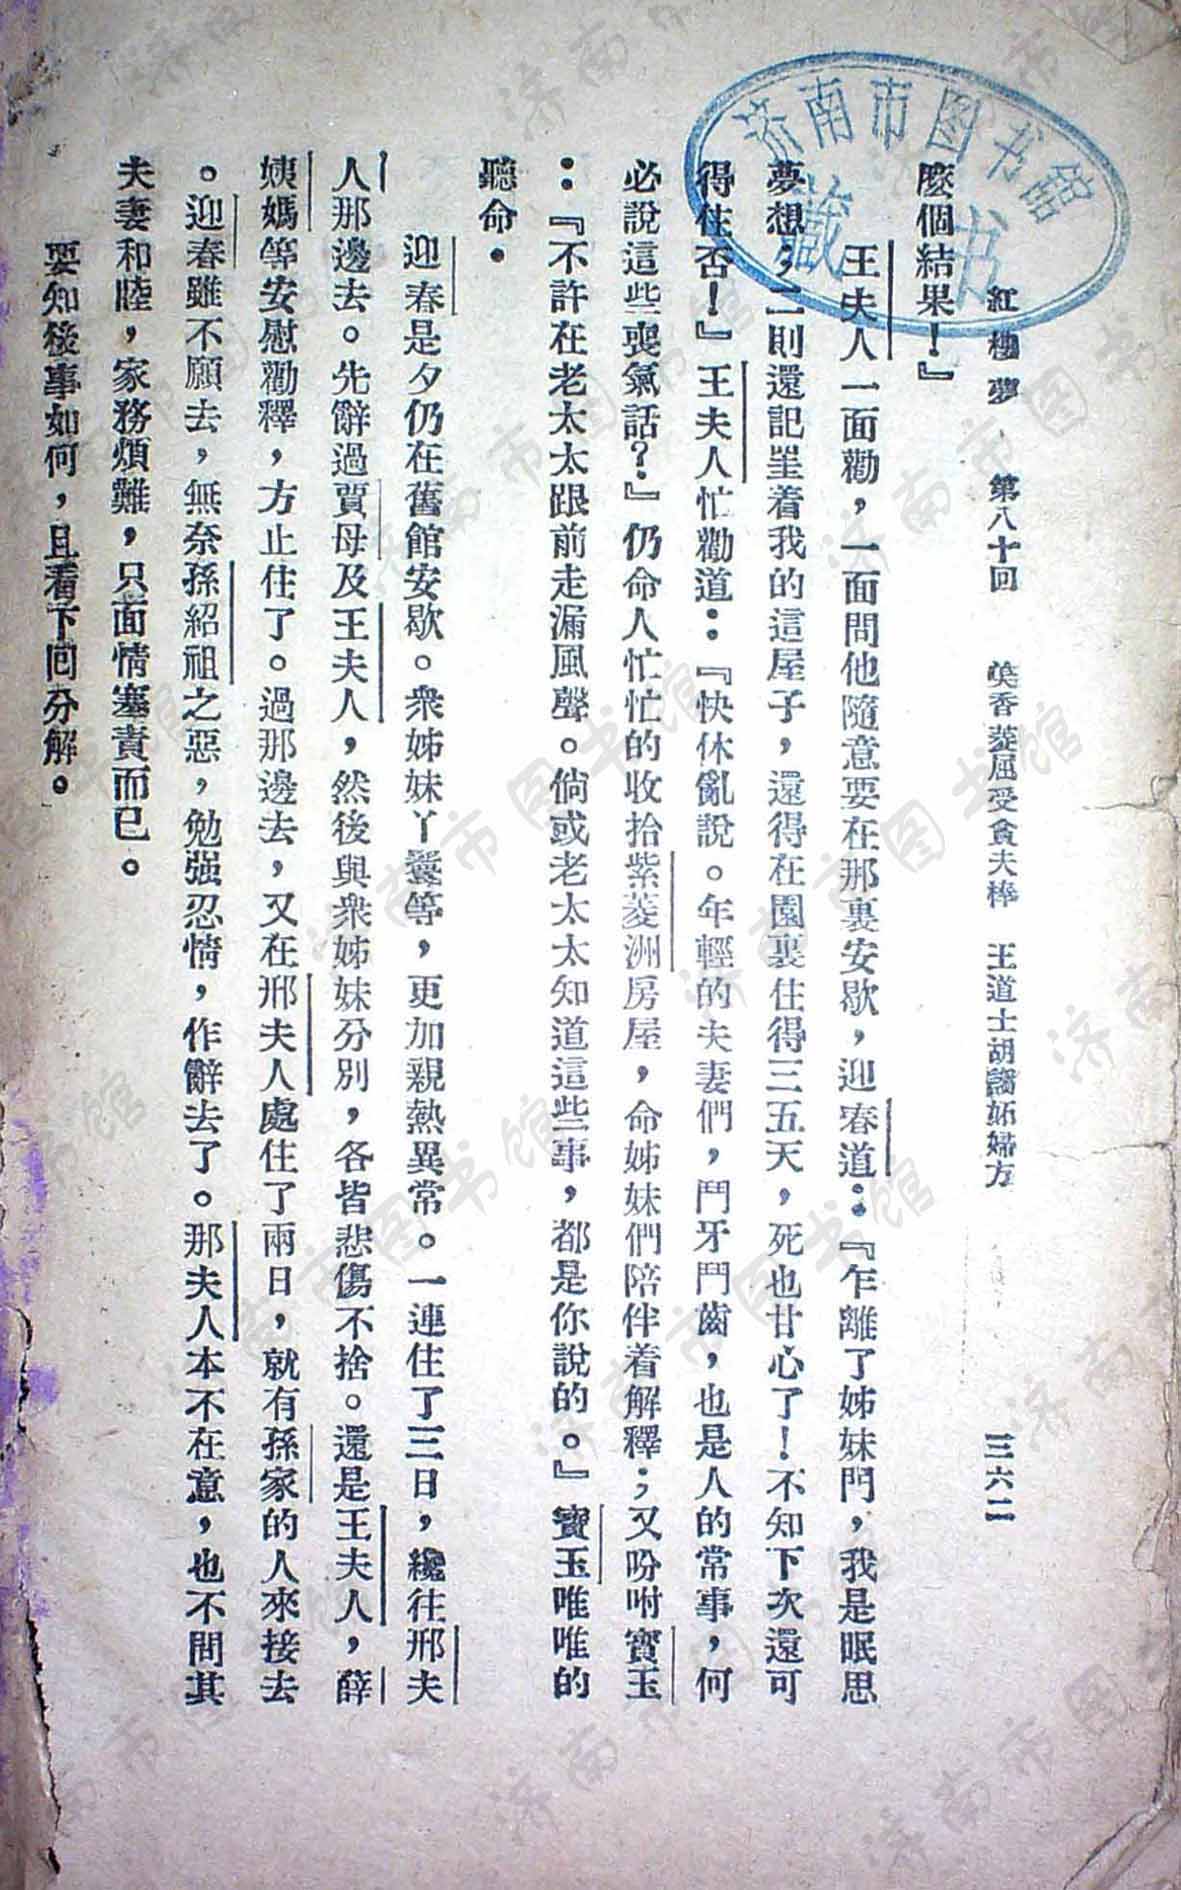 紅樓夢 第八十回 美香菱屈受貪夫棒 王道士胡謅妬婦方 三六二
麼個結果！』
王夫人一面勸，一面問他隨意要在那裏安歇，迎春道：『乍離了姊妹門，我是眠思
夢想，二則還記罣着我的這屋子，還得在園裏住得三五天，死也甘心了！不知下次還可
得住否！』王夫人忙勸道：『快休亂說。年輕的夫妻們，鬥牙鬥齒，也是人的常事，何
必說這些喪氣話？』仍命人忙忙的收拾紫菱洲房屋，命姊妹們陪伴着解釋；又吩咐寶玉
：『不許在老太太跟前走漏風聲。倘或老太太知道這些事，都是你說的。』寶玉唯唯的
聽命．
迎春是夕仍在舊館安歇。衆姊妹丫鬟等，更加親熱異常。一連住了三日，纔往邢夫
人那邊去。先辭過賈母及王夫人，然後與衆姊妹分別，各皆悲傷不捨。還是王夫人，薛
姨媽等安慰勸釋，方止住了。過那邊去，又在邢夫人處住了兩日，就有孫家的人來接去
。迎春雖不願去，無奈孫紹祖之惡，勉强忍情，作辭去了。那夫人本不在意，也不間其
夫妻和睦，家務煩難，只面情塞責而已。
要知後事如何，且看下回分解。
济南市图书馆
藏书